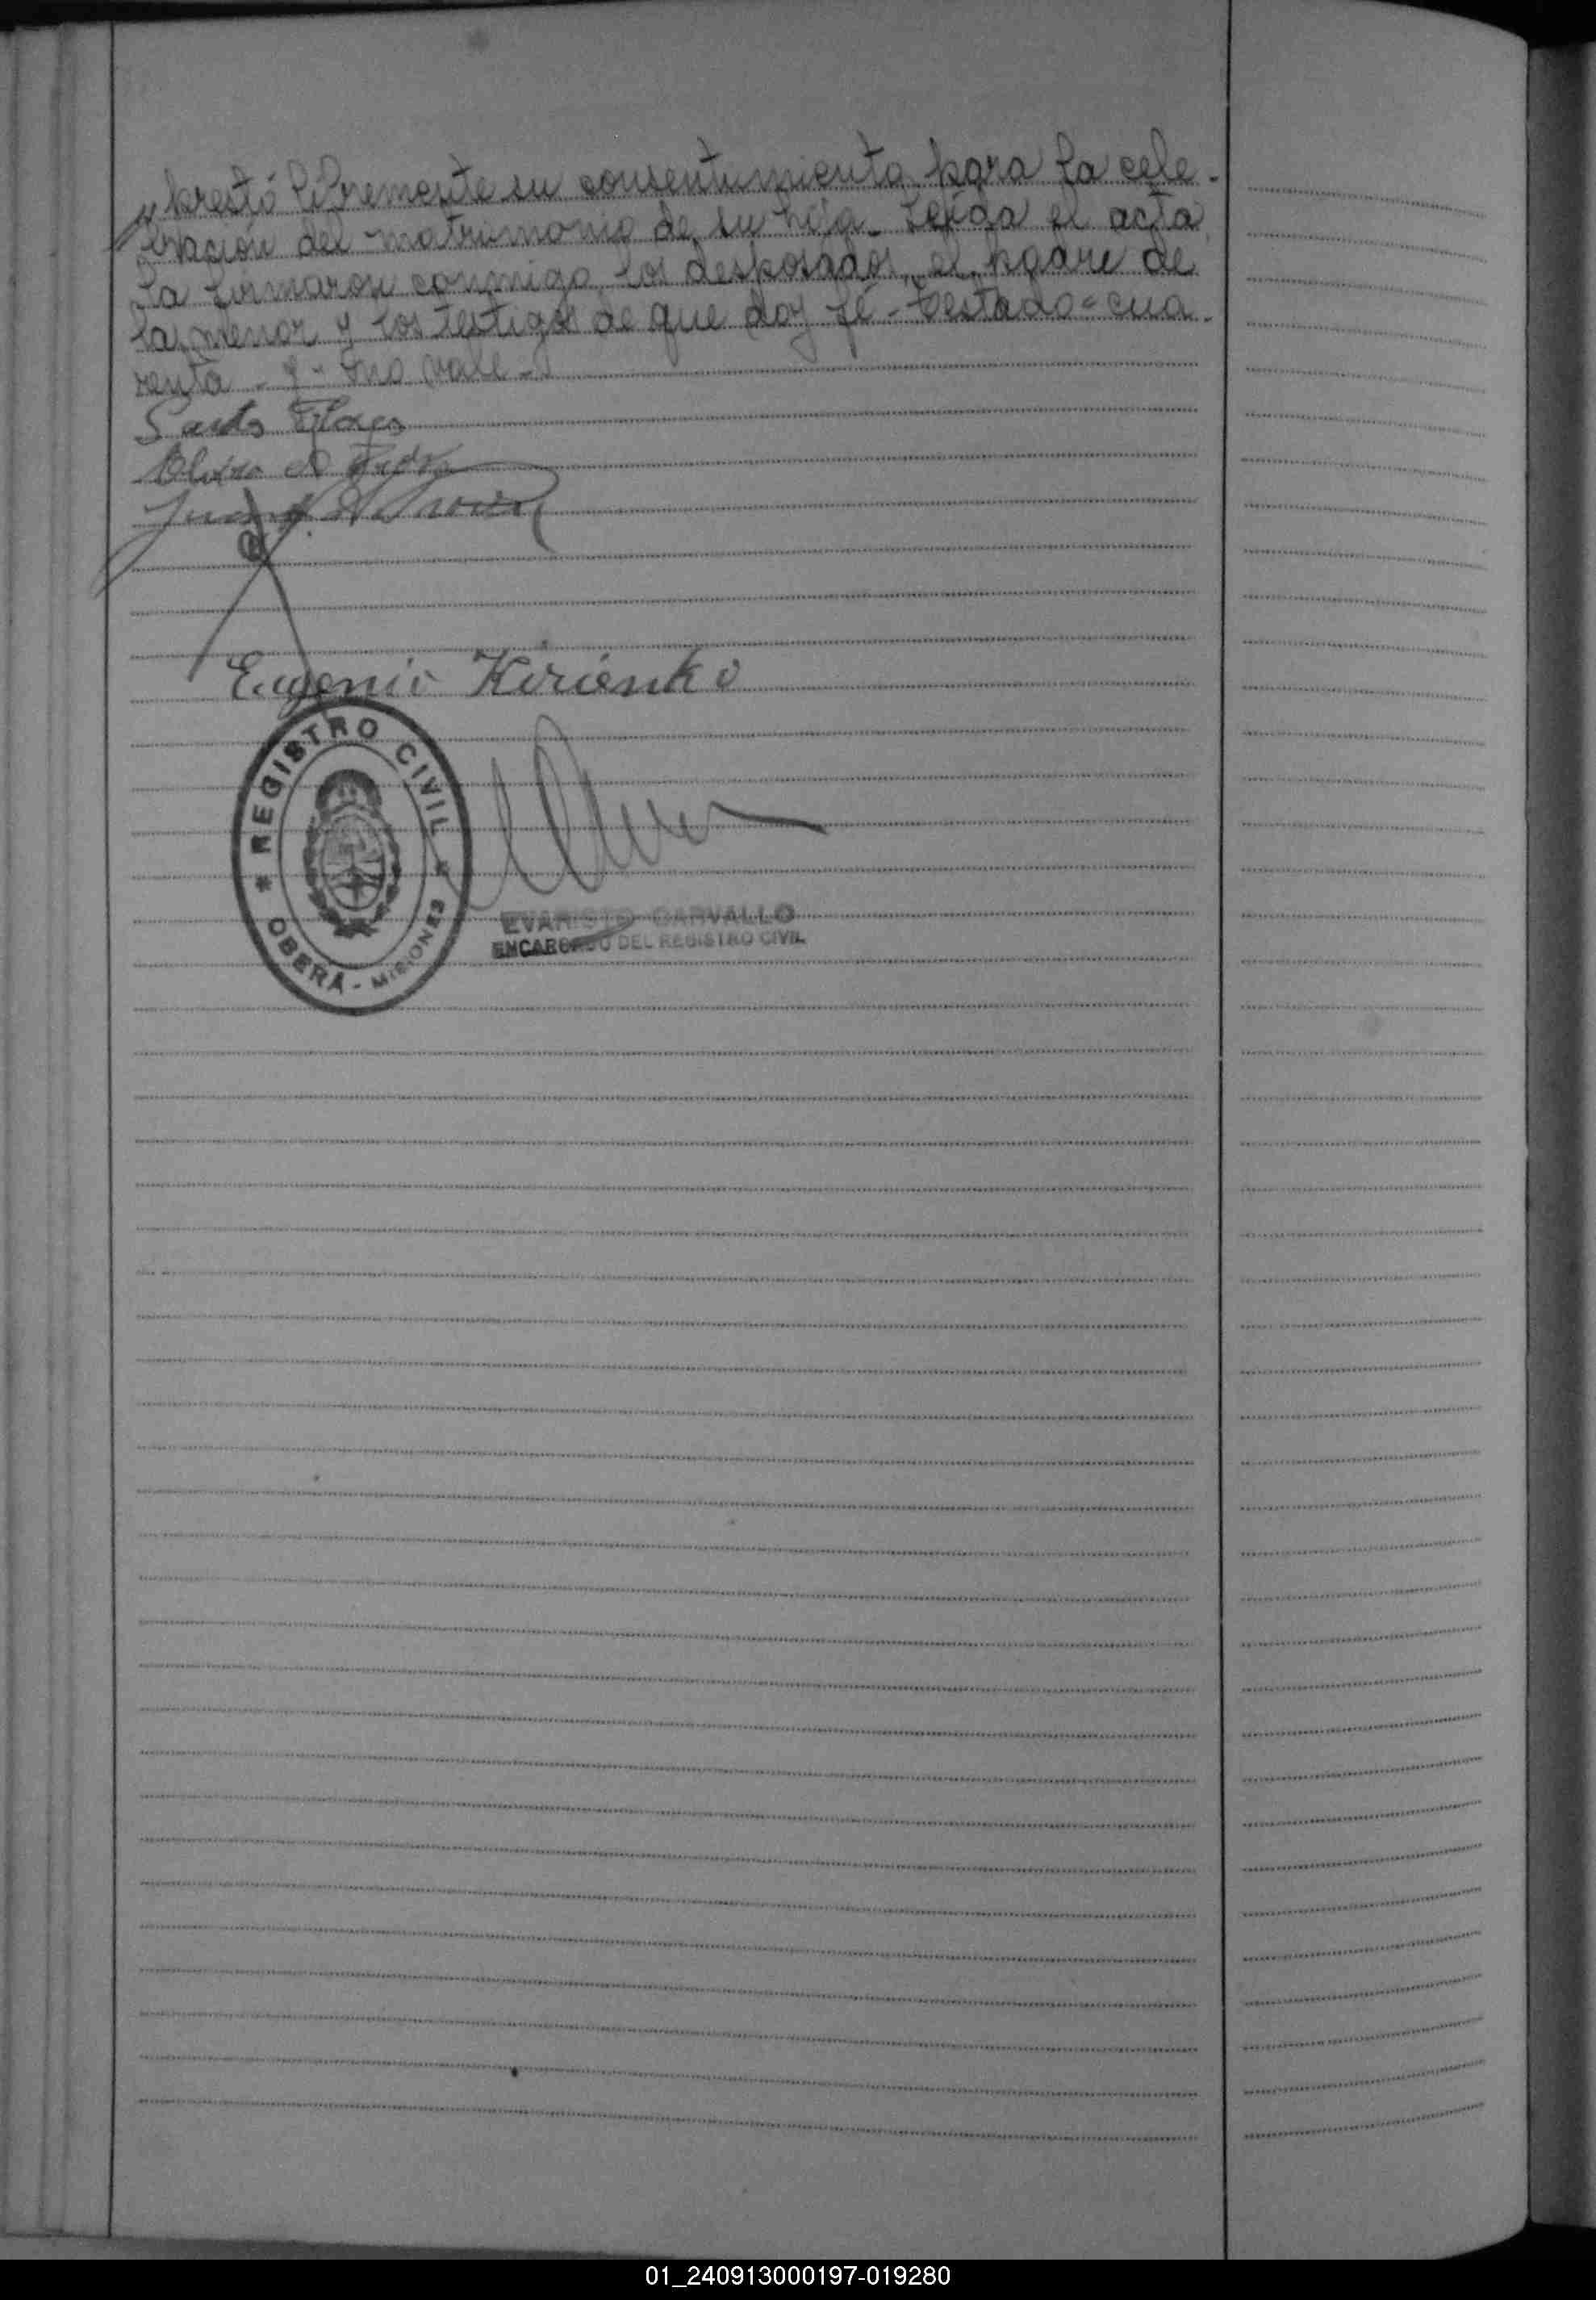 y prestó libremente su consentimiento para la cele-
bración del matrimonio de su hija. Leída el acta
la firmaron conmigo, los desposados, el padre de
la menor y los testigos de que doy fé - Testado = cua-
renta - y - no vale -
Santo
Eugenio Kirienko
REGISTRO CIVIL
OBERÁ - MISIONES
EVARISTO CARVALLO
ENCARGADO DEL REGISTRO CIVIL
01_240913000197-019280